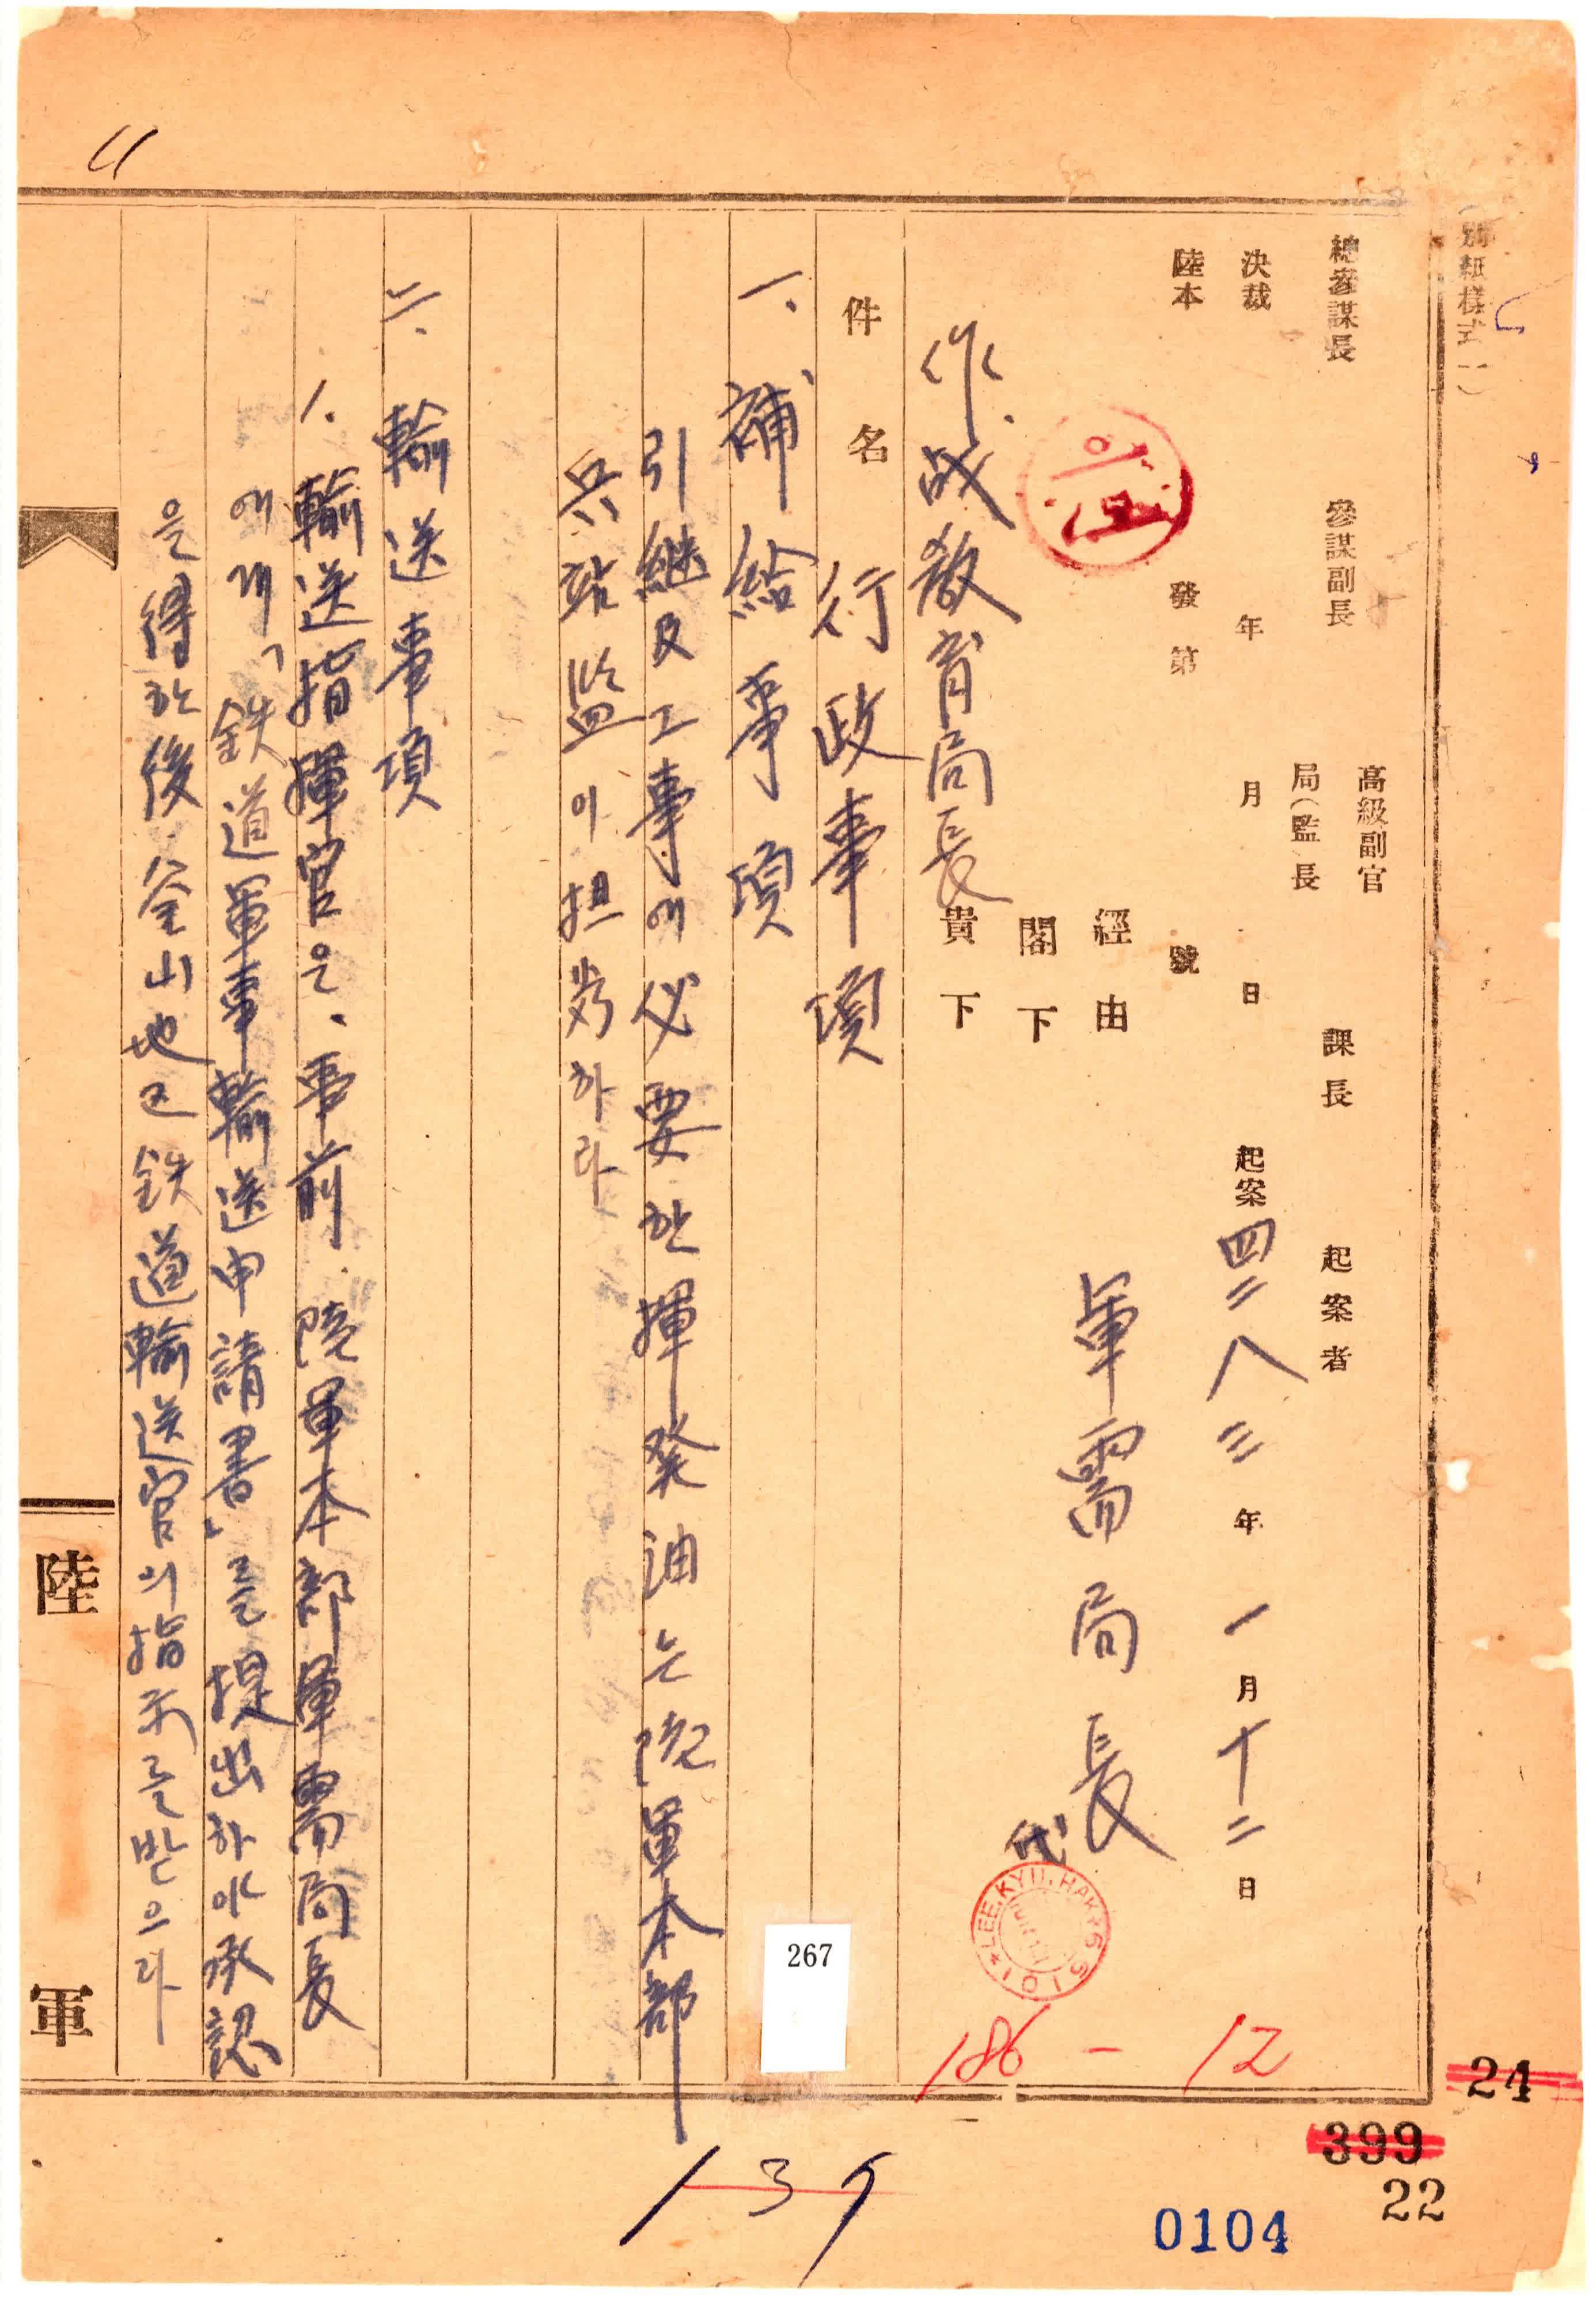 別紙樣式(一)
總參謀長 參謀副長 高級副官 局(監)長 課長 起案者
決裁 年 月 日 起案 四二八三年 一月 十二日
陸本 發第 號
經由
閣下
軍需局長
代
作战敎育局長 貴下
件名 行政事項
一、補給事項
引継及工事에必要한揮発油는陸軍本部
兵站監이担當하라
二、輸送事項
1. 輸送指揮官은、事前、陸軍本部軍需局長
에게「鉄道軍事輸送申請書」를提出하야承認
을得한後、釜山地区鉄道輸送官의指示를받으라
陸軍
LEE.KYU.HAK
267
186-12
24
399
22
0104